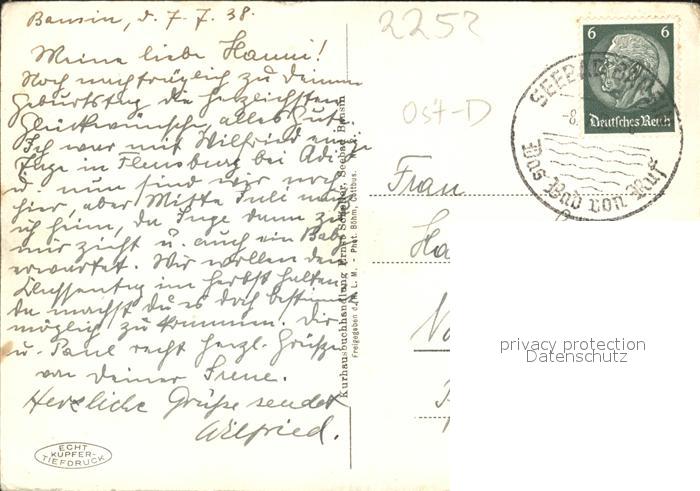 Bansin, d. 7.7.38.
Meine liebe Hanni!
Noch nachträglich zu Deinem
Geburtstag die herzlichsten
Glückwünsche, alles Gute.
Ich war mit Wilfried einige
Tage in Flensburg bei Adi
u. nun sind wir noch
hier, aber Mitte Juli muß
ich heim, da Inge dann zu
mir zieht u. auch ein Baby
erwartet. Wir wollen den
Klassentag im Herbst halten,
da machst du es doch bestimmt
möglich zu kommen. Dir
u. Paul recht herzl. Grüße
von Deiner Irene.
Herzliche Grüße sendet
Wilfried.
ECHT
KUPFER-
TIEFDRUCK
Kurhausbuchhandlung Ernst Seebad Bansin
Freigegeben d. R. L. M. - Phot. Böhm, Cottbus.
2252
Ost-D
6 6
Deutsches Reich
SEEBAD BANSIN
-8.
Das Bad von Ruf
Frau
Ha
privacy protection
Datenschutz